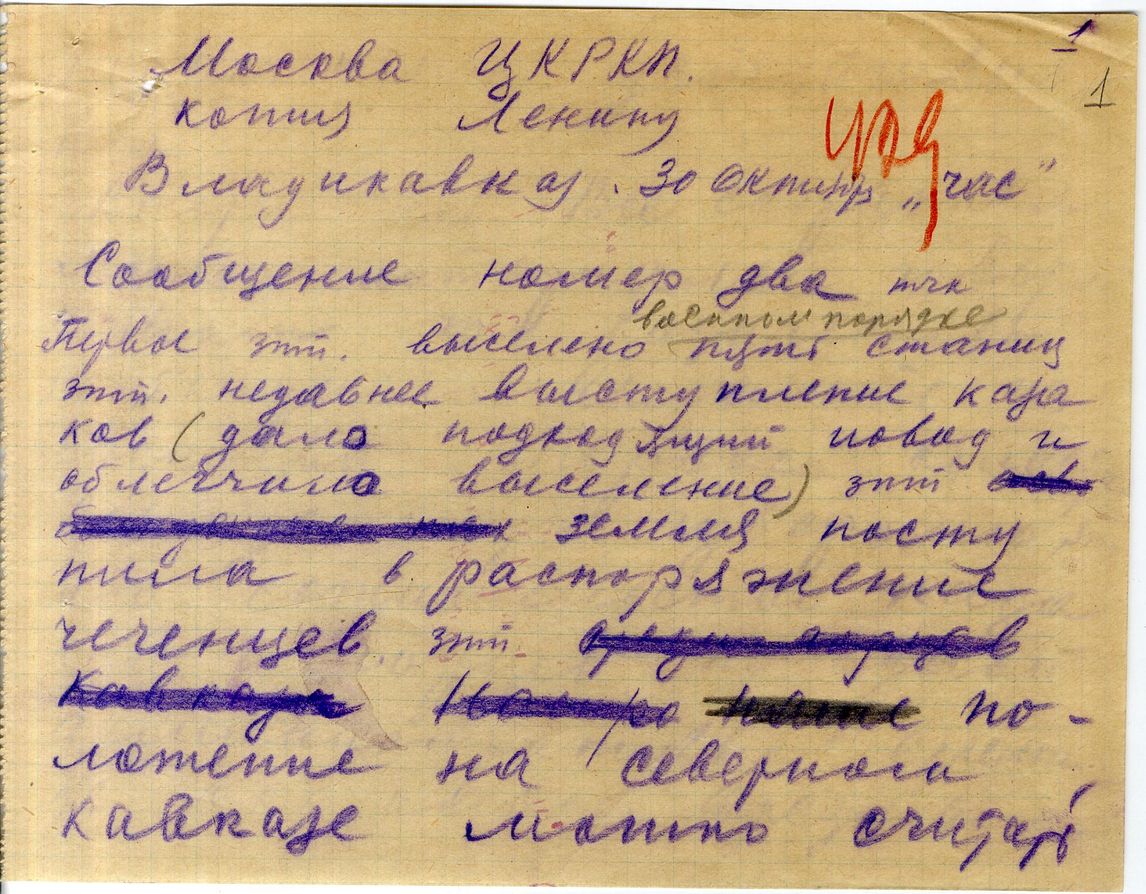 1
1
Москва ЦКРКП.
копия Ленину
Владикавказ. 30 Октябр „час"
Сообщение номер два тчк
военном порядке
Первое зпт. выселено пять станиц
зпт. недавнее выступление каза
ков (дало подходящий повод и
облегчило выселение) зпт
земля посту
пила в распоряжение
чеченцев зпт.
Кавказа по-
ложение на северном
кавказе можно считать